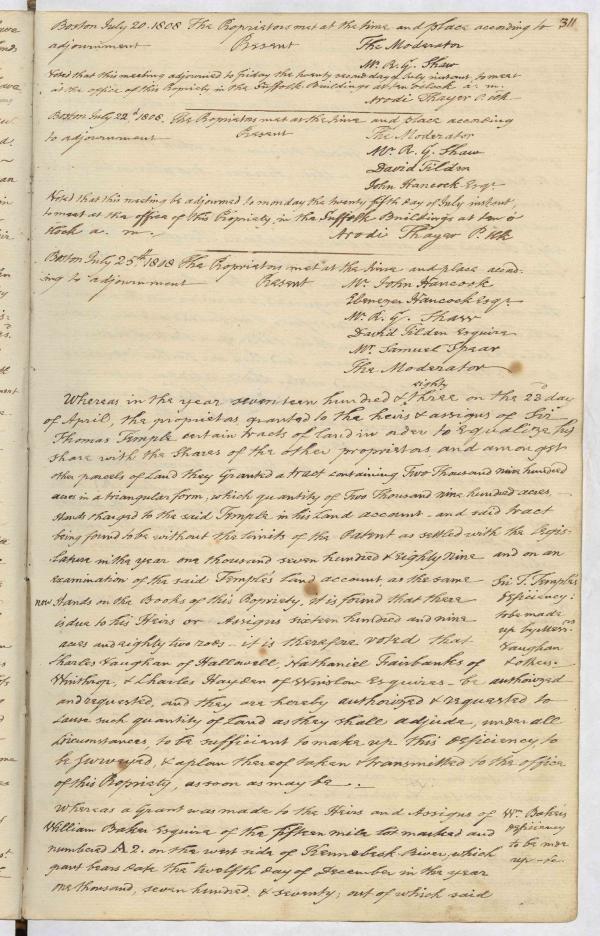 311
Boston July 20. 1808 The Proprietors met at the time and place according to
adjournment Present The Moderator
Mr. R. G. Shaw
Voted that this meeting adjourned to friday the twenty second day of July instant, to meet
at the office of this Propriety in the Suffolk Buildings at ten oClock a. m.
Arodi Thayer P. Clk
Boston July 22d 1808. The Proprietors met at the time and place according
to adjournment Present The Moderator
Mr. R. G. Shaw
David Tilden
John Hancock Esqr
Voted that this meeting be adjourned to monday the twenty fifth day of July instant,
to meet at the office of this Propriety, in the Suffolk Buildings at ten o
Clock a. m. Arodi Thayer P. Clk
Boston July 25th 1808 The Proprietors met at the time and place accord-
ing to adjournment Present Mr. John Hancock
Ebenezer Hancock Esqr
Mr. R. G. Shaw
David Tilden Esquire
Mr. Samuel Spear
The Moderator
eighty
Whereas in the year seventeen hundred & three on the 23d day
of April, the proprietors granted to the heirs & assigns of Sir
Thomas Temple certain tracts of land in order to Equalize his
share with the shares of the other proprietors, and amongst
other parcels of Land they Granted a tract containing Two Thousand nine hundred
acres in a triangular form, which quantity of Two Thousand nine hundred acres,
stands charged to the said Temple in his Land account - and said tract
being found to be without the limits of the Patent as settled with the Legis-
lature in the year one thousand seven hundred & eighty nine and on an
examination of the said Temple's land account as the same
now stands on the Books of this Propriety, it is found that there
is due to his Heirs or Assigns sixteen hundred and nine
acres and eighty two rods - it is therefore voted that
Charles Vaughan of Hallowell, Nathaniel Fairbanks of
Winthrop, & Charles Hayden of Winslow Esquires - be authorized
and requested, and they are hereby authorized & requested to
cause such quantity of Land as they shall adjudge, under all
Circumstances, to be sufficient to make up this deficiency, to
be surveyed, & a plan thereof taken & transmitted to the office
of this Propriety, as soon as may be.
Sir T. Temple's
deficiency:
to be made
up by Messrs
Vaughan
& others.
Whereas a Grant was made to the Heirs and Assigns of
William Baker Esquire of the fifteen mile lot marked and
numbered A 2. on the west side of Kennebeck River, which
grant bears date the twelfth day of December in the year
one thousand, seven hundred, & seventy; out of which said
Wm Baker's
deficiency
to be made
up - &c.